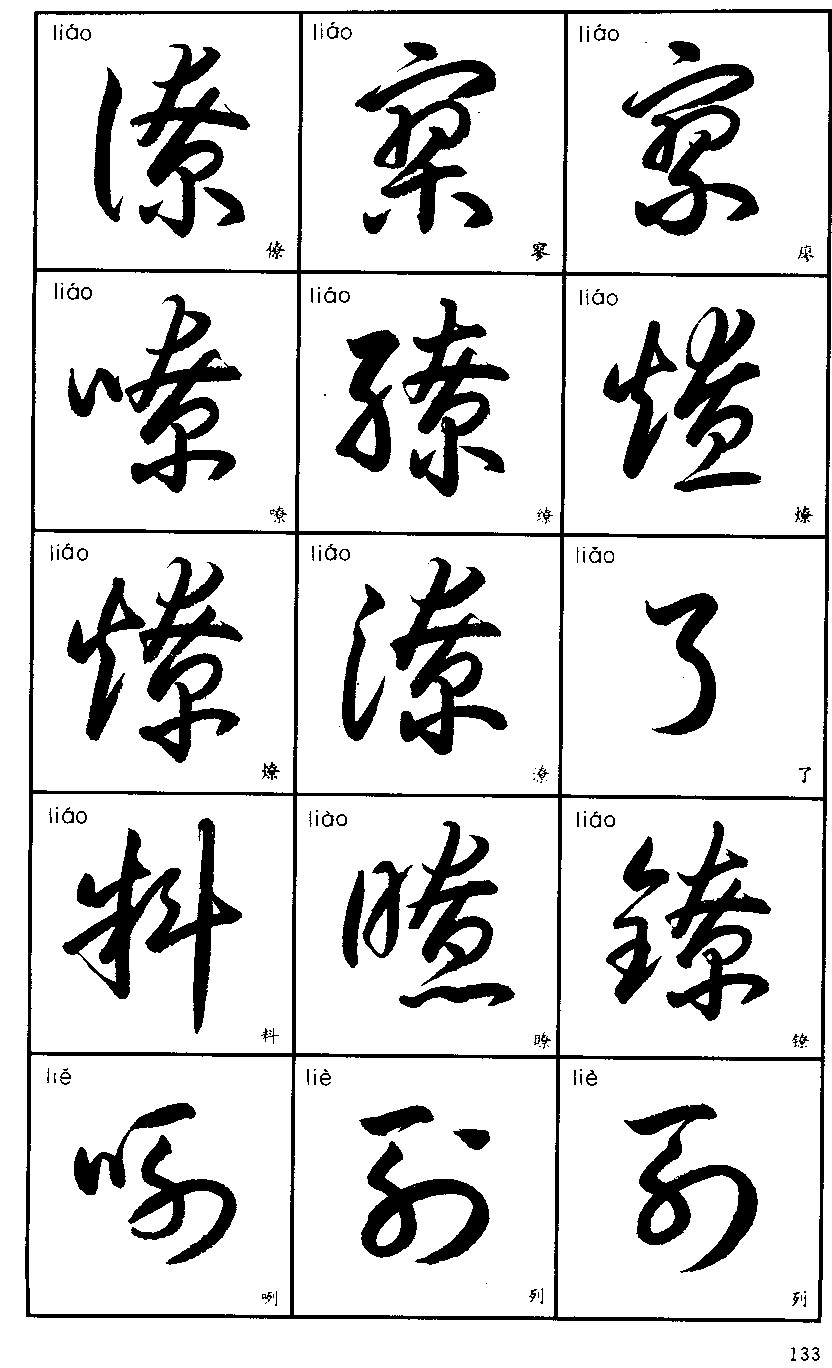 liáo liáo liáo
僚 寥 廖
liáo liáo liáo
嘹 缭 燎
liáo liáo liǎo
燎 潦 了
liáo liào liáo
料 瞭 镣
liě liè liè
咧 列 列
133